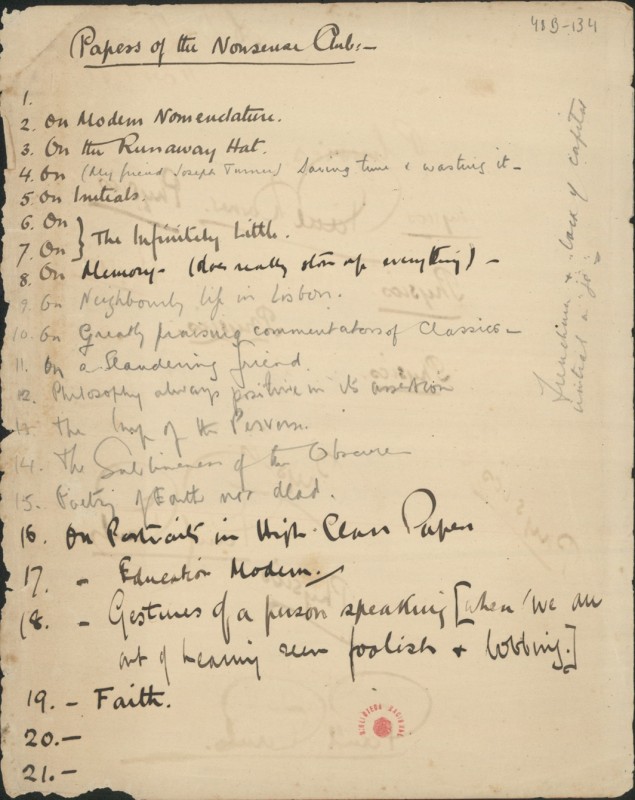 48B-134
Papers of the Nonsense Club:-
1.
2. On Modern Nomenclature.
3. On the Runaway Hat.
4. On (My friend Joseph Turner) Saving time & wasting it -
5. On Initials.
6. On
7. On } The Infinitely Little.
8. On Memory - (does really store up everything) -
9. On Neighbourly life in Lisbon.
10. On Greatly praising commentators of Classics -
11. On a Slandering friend.
12. Philosophy always positive in its assertion
13. The of the
14. The Sublimeness of the Obscure
15. Poetry of Earth not dead.
16. On Portraits in High-Class Papers
17. - Education Modern.
18. - Gestures of a person speaking [when we are
out of hearing seem foolish & .]
19. - Faith.
20. -
21. -
& lack of capital
initial in
BIBLIOTECA NACIONAL